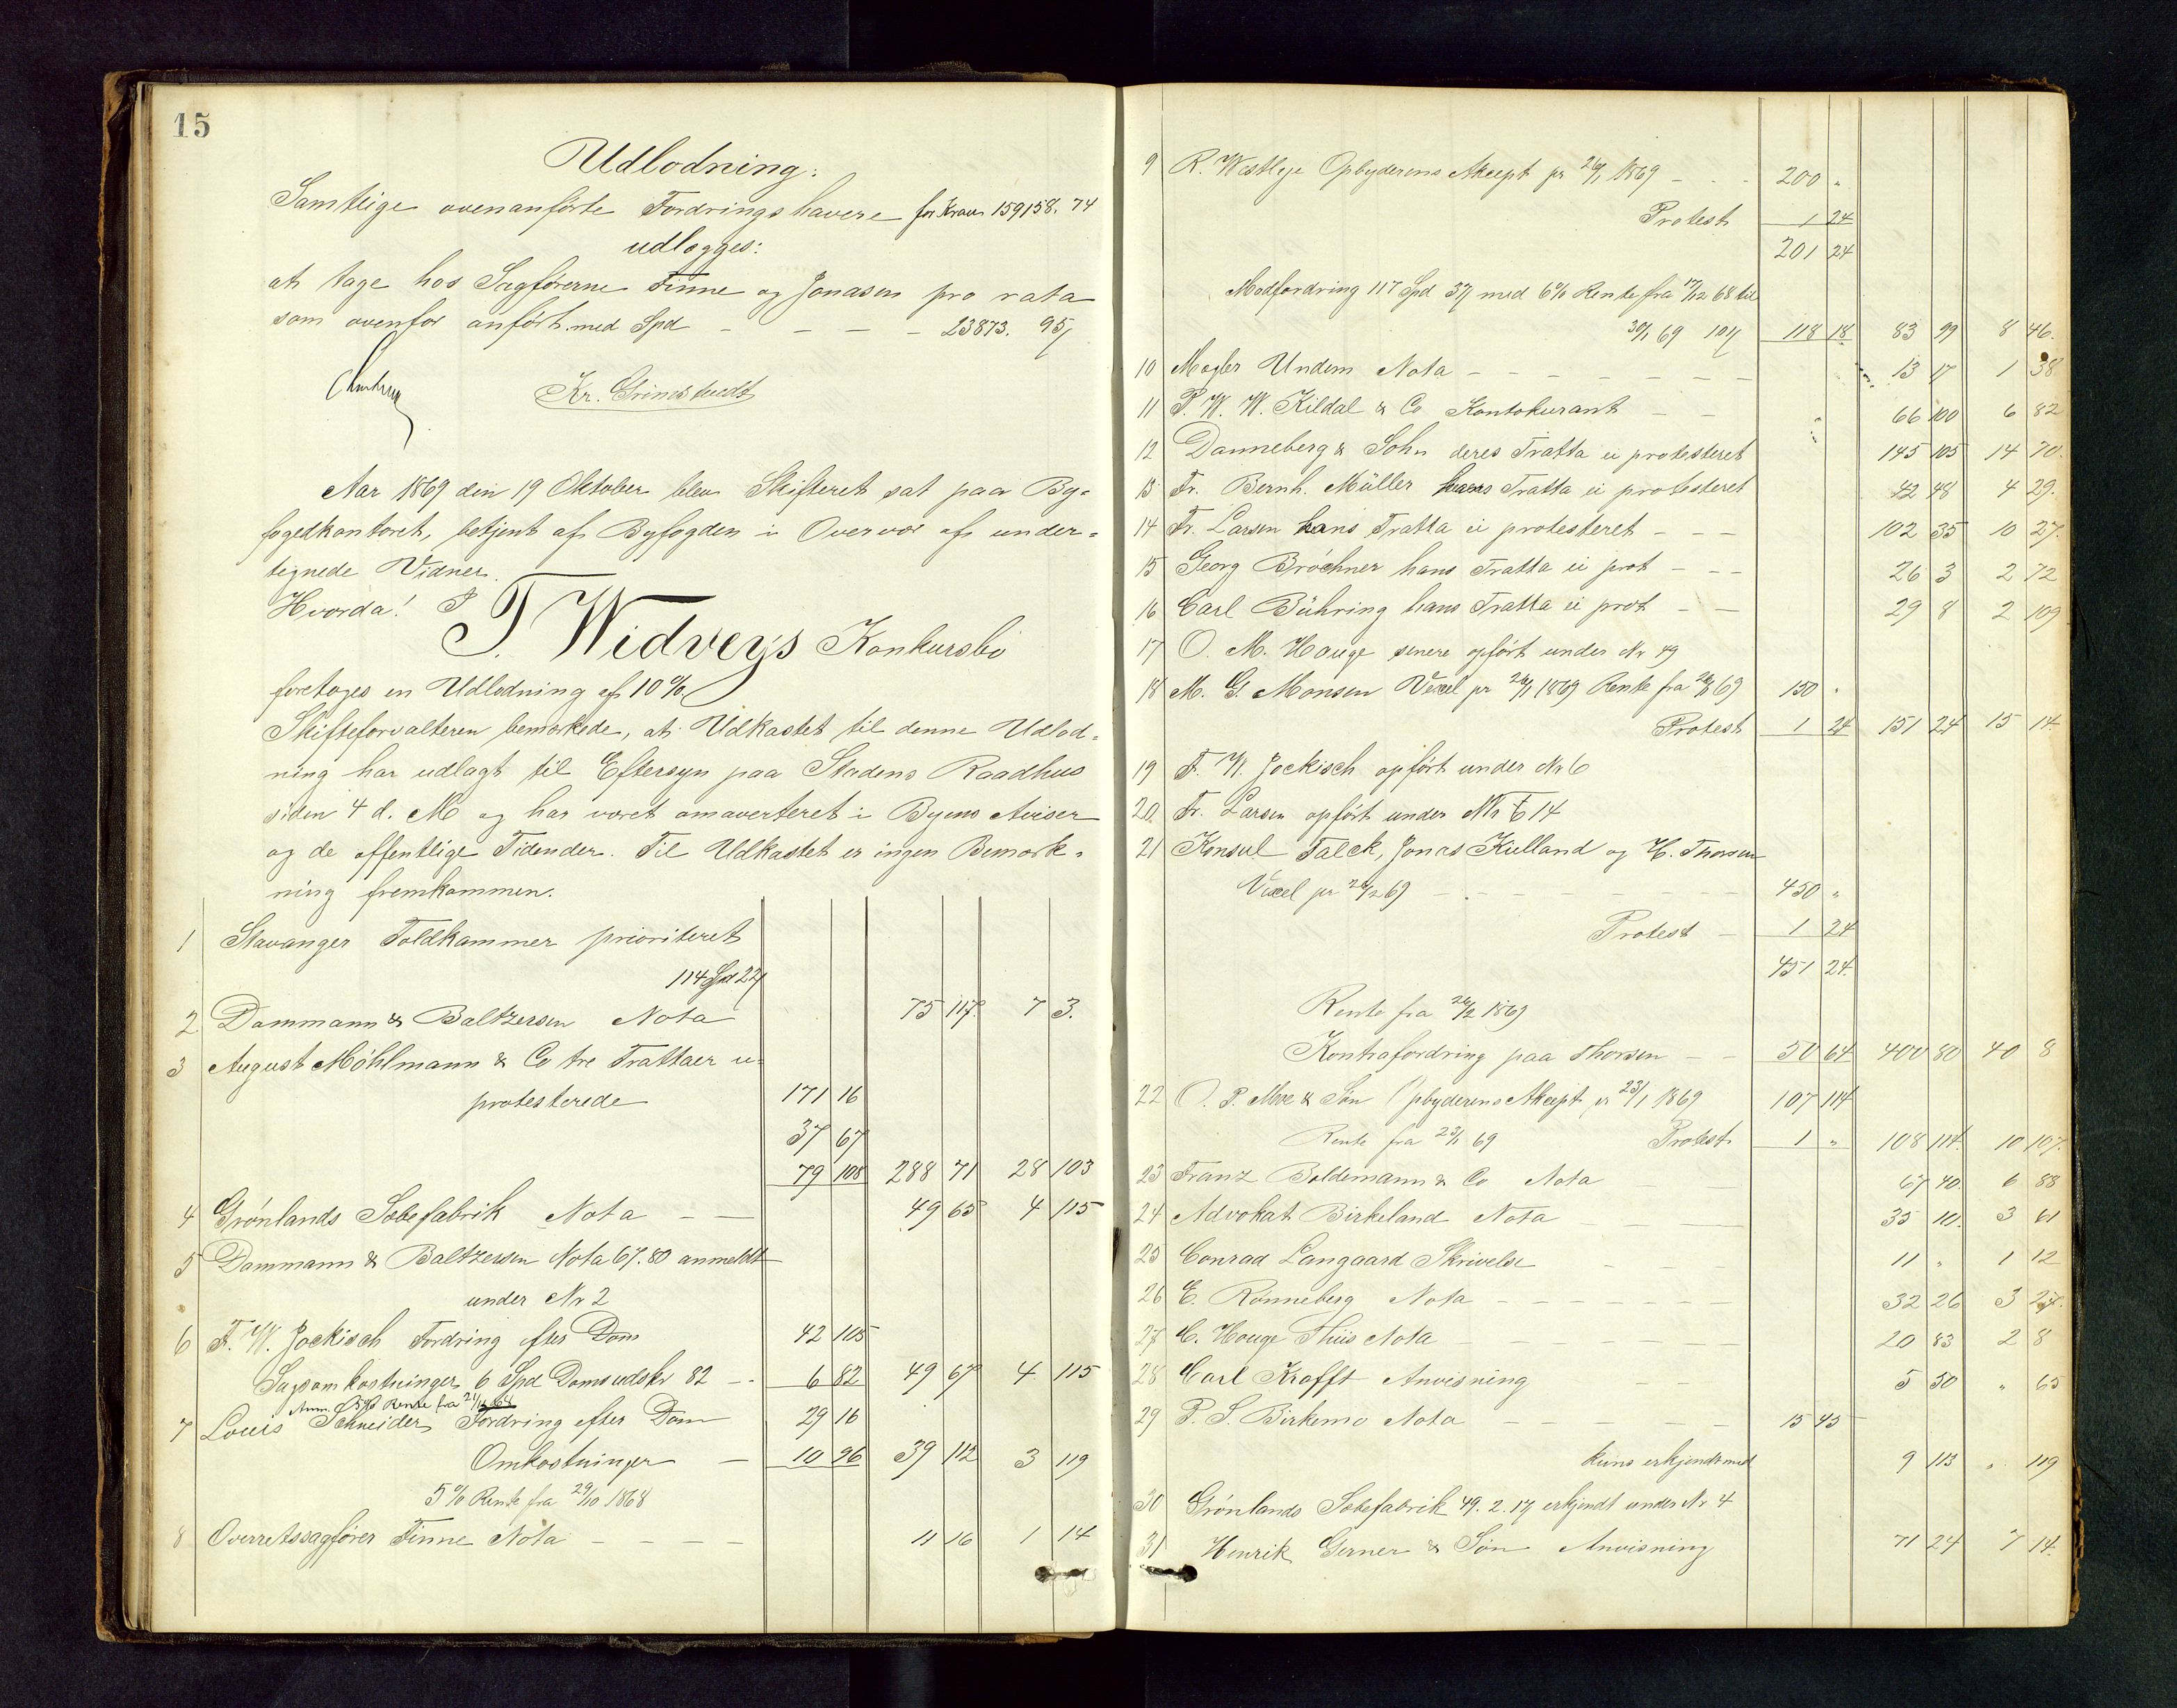 15
Udlodning:
Samtlige ovenanførte Fordringshavere for Krav 159158. 74
udlægges:
at tage hos Sagførerne Finne og Jonassen pro rata
som ovenfor anført med Spd - - - - 23873. 95
Kr. Grimstvedt
Aar 1869 den 19 Oktober blev Skifteret sat paa By-
fogedkontoret, betjent af Byfogden i Overvær af under-
tegnede Vidner.
Hvorda!
T. Widvey's Konkursbo
foretoges en Udlodning af 10%
Skifteforvalteren bemærkede, at Udkastet til denne Udlod-
ning har udlagt til Eftersyn paa Stadens Raadhus
siden 4 d. M og har været omaverteret i Byens Aviser
og de offentlige Tidender. Til Udkastet er ingen Bemærk-
ning fremkommen.
1 Stavanger Toldkammer prioriteret
114 Spd 22
2. Dammann & Baltzersen Nota 75 117. 7 3.
3 August Möhlmann & Co tre Trattaer u-
protesterede 171 16
37 67
79 108 288 71 28 103
4 Grønlands Sæbefabrik Nota - - 49 65 4 115
5 Dammann & Baltzersen Nota 67.80 anmeldt
under Nr 2
6 F. W. Jockisch Fordring efter Dom 42 105
Sagsomkostninger 6 Spd Domsudskr 82 - - 6 82 49 67 4 115
7 Louis Schneider Fordring efter Dom 29 16
Omkostninger - 10 96 39 112 3 119
5% Rente fra 29/10 1868
8 Overretssagfører Finne Nota - - - - 11 16 1 14
9 R. Westlye Opbyderens Akcept pr 26/1 1869 - - - 200 "
Protest 1 24
201 24
Modfordring 117 Spd 37 med 6% Rente fra 17/12 68 til
30/1 69 101 118 18 83 99 8 46.
10 Mægler Undem Nota - - - - - - - 13 17 1 38
11 P. W. W. Kildal & Co Kontokurant - - 66 100 6 82
12 Danneberg & Sohn deres Tratta ei protesteret 145 105 14 70.
13 Fr. Bernh. Müller hans Tratta ei protesteret 42 48 4 29.
14 Fr. Larsen hans Tratta ei protesteret - - - 102 35 10 27.
15 Georg Bröchner hans Tratta ei prot - - - 26 3 2 72
16 Carl Bühring hans Tratta ei prot - - 29 8 2 109
17 O. M. Hauge senere opført under Nr 49
18 M. G. Monsen Vexel pr 26/1 1869 Rente fra 26/1 69 150 "
Protest 1 24 151 24 15 14.
19 F. W. Jockisch opført under Nr 6
20. Fr. Larsen opført under Nr 14
21 Konsul Falck, Jonas Kielland og H. Thorsen
Vexel pr 26/2 69 - - - - - - - - 450 "
Protest - 1 24
451 24.
Rente fra 26/2 1869
Kontrafordring paa Thorsen - - 50 64 400 80 40 8
22 O. P. Moe & Søn Opbyderens Akcept pr 23/1 1869 107 114
Rente fra 23/1 69 Protest 1 " 108 114. 10 107.
23 Franz Boldemann & Co Nota - - 67 40 6 88
24 Advokat Birkeland Nota - - - - 35 10. 3 61
25 Conrad Langaard Skrivelse - - - 11 " 1 12
26 E. Rønneberg Nota - - - - - - - 32 26 3 27.
27 C. Hauge Thiis Nota - - - - - - 20 83 2 8
28 Carl Krafft Anvisning - - 5 50 " 65
29 P. S. Birkemo Nota - - - - - 15 45
kuns erkjendt med 9 113 " 119
30 Grønlands Sæbefabrik 49. 2. 17 erkjendt under Nr. 4
31 Henrik Gerner & Søn Anvisning 71 24 7 14.